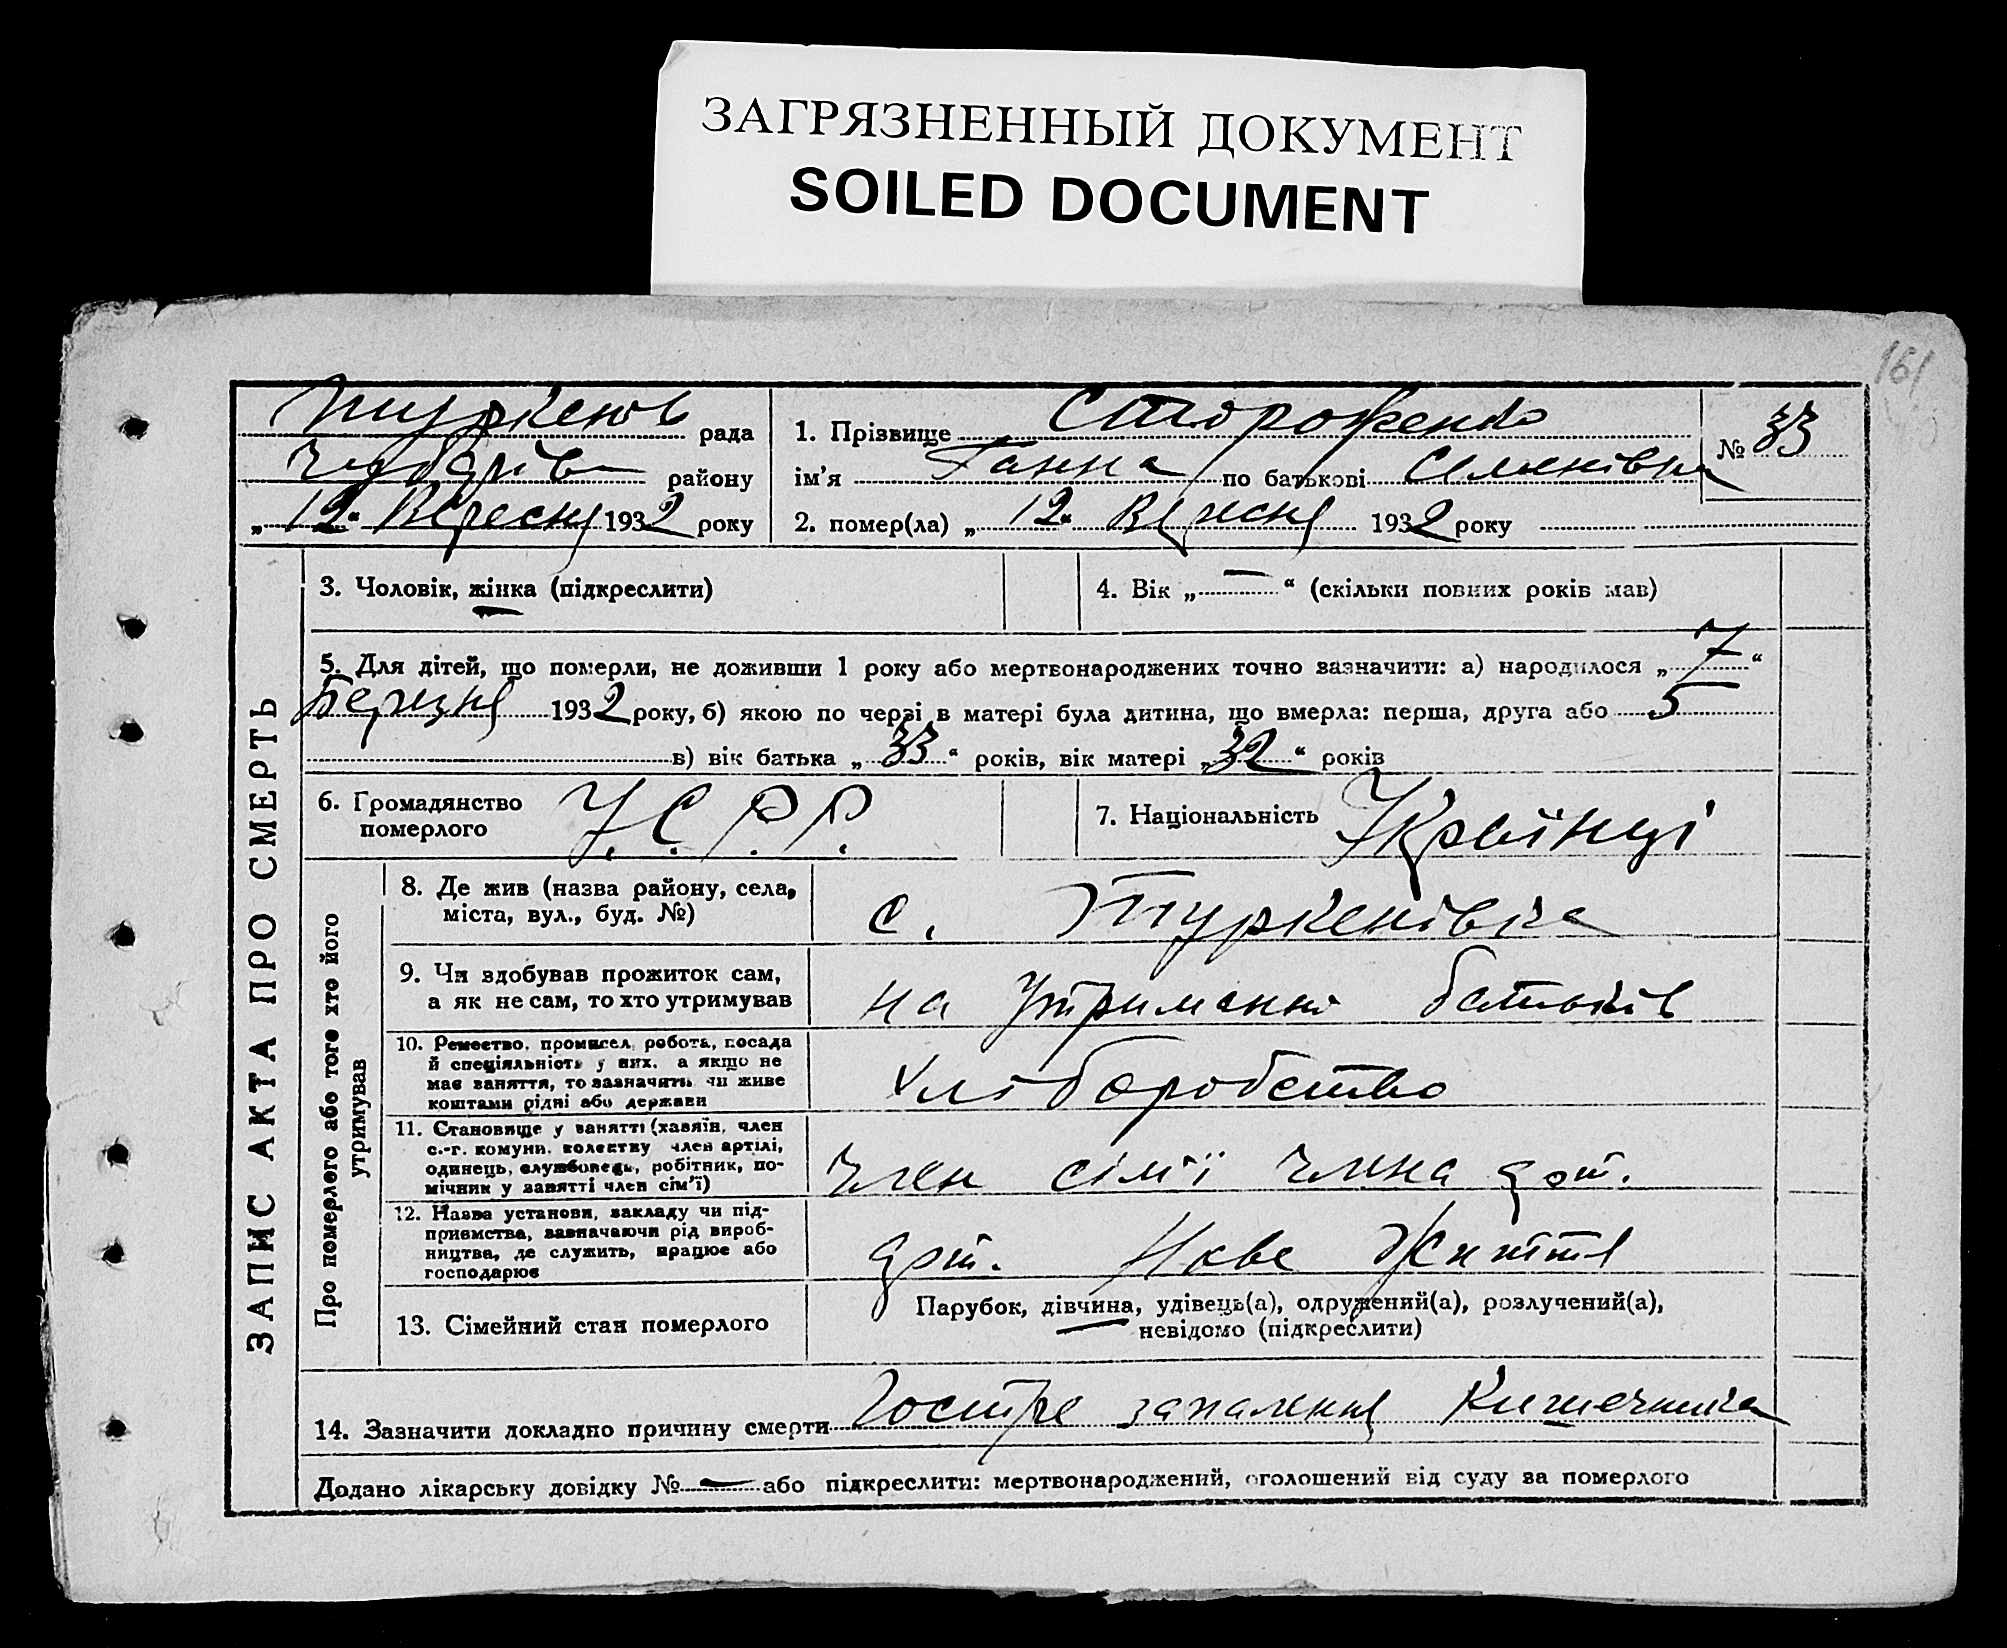 ЗАГРЯЗНЕННЫЙ ДОКУМЕНТ
SOILED DOCUMENT
161
Туркенів рада
району
„12“ Вересня 1932 року
1. Прізвище Стороженко
ім'я Ганна по батькові Семенівна
2. помер(ла) „12“ Вересня 1932 року
№ 33
ЗАПИС АКТА ПРО СМЕРТЬ
3. Чоловік, жінка (підкреслити)
4. Вік „—“ (скільки повних років мав)
5. Для дітей, що померли, не доживши 1 року або мертвонароджених точно зазначити: а) народилося „7“
Березня 1932 року, б) якою по черзі в матері була дитина, що вмерла: перша, друга або 5
в) вік батька „33“ років, вік матері „32“ років
6. Громадянство
померлого
У.С.Р.Р.
7. Національність Українці
Про померлого або того хто його
утримував
8. Де жив (назва району, села,
міста, вул., буд. №)
с. Туркенівка
9. Чи здобував прожиток сам,
а як не сам, то хто утримував
на утриманні батьків
10. Ремество, промисел, робота, посада
й спеціяльність у них, а якщо не
має заняття, то зазначить чи живе
коштами рідні або держави
хліборобство
11. Становище у занятті (хазяїн, член
с.-г. комуни, колективу член артілі,
одинець, службовець, робітник, по-
мічник у занятті член сім'ї)
Член сім'ї члена арт.
12. Назва установи, закладу чи під-
приємства, зазначаючи рід вироб-
ництва, де служить, працює або
господарює
арт. Нове Життя
13. Сімейний стан померлого
Парубок, дівчина, удівець(а), одружений(а), розлучений(а),
невідомо (підкреслити)
14. Зазначити докладно причину смерти Гостре запалення Кишечника
Додано лікарську довідку № — або підкреслити: мертвонароджений, оголошений від суду за померлого